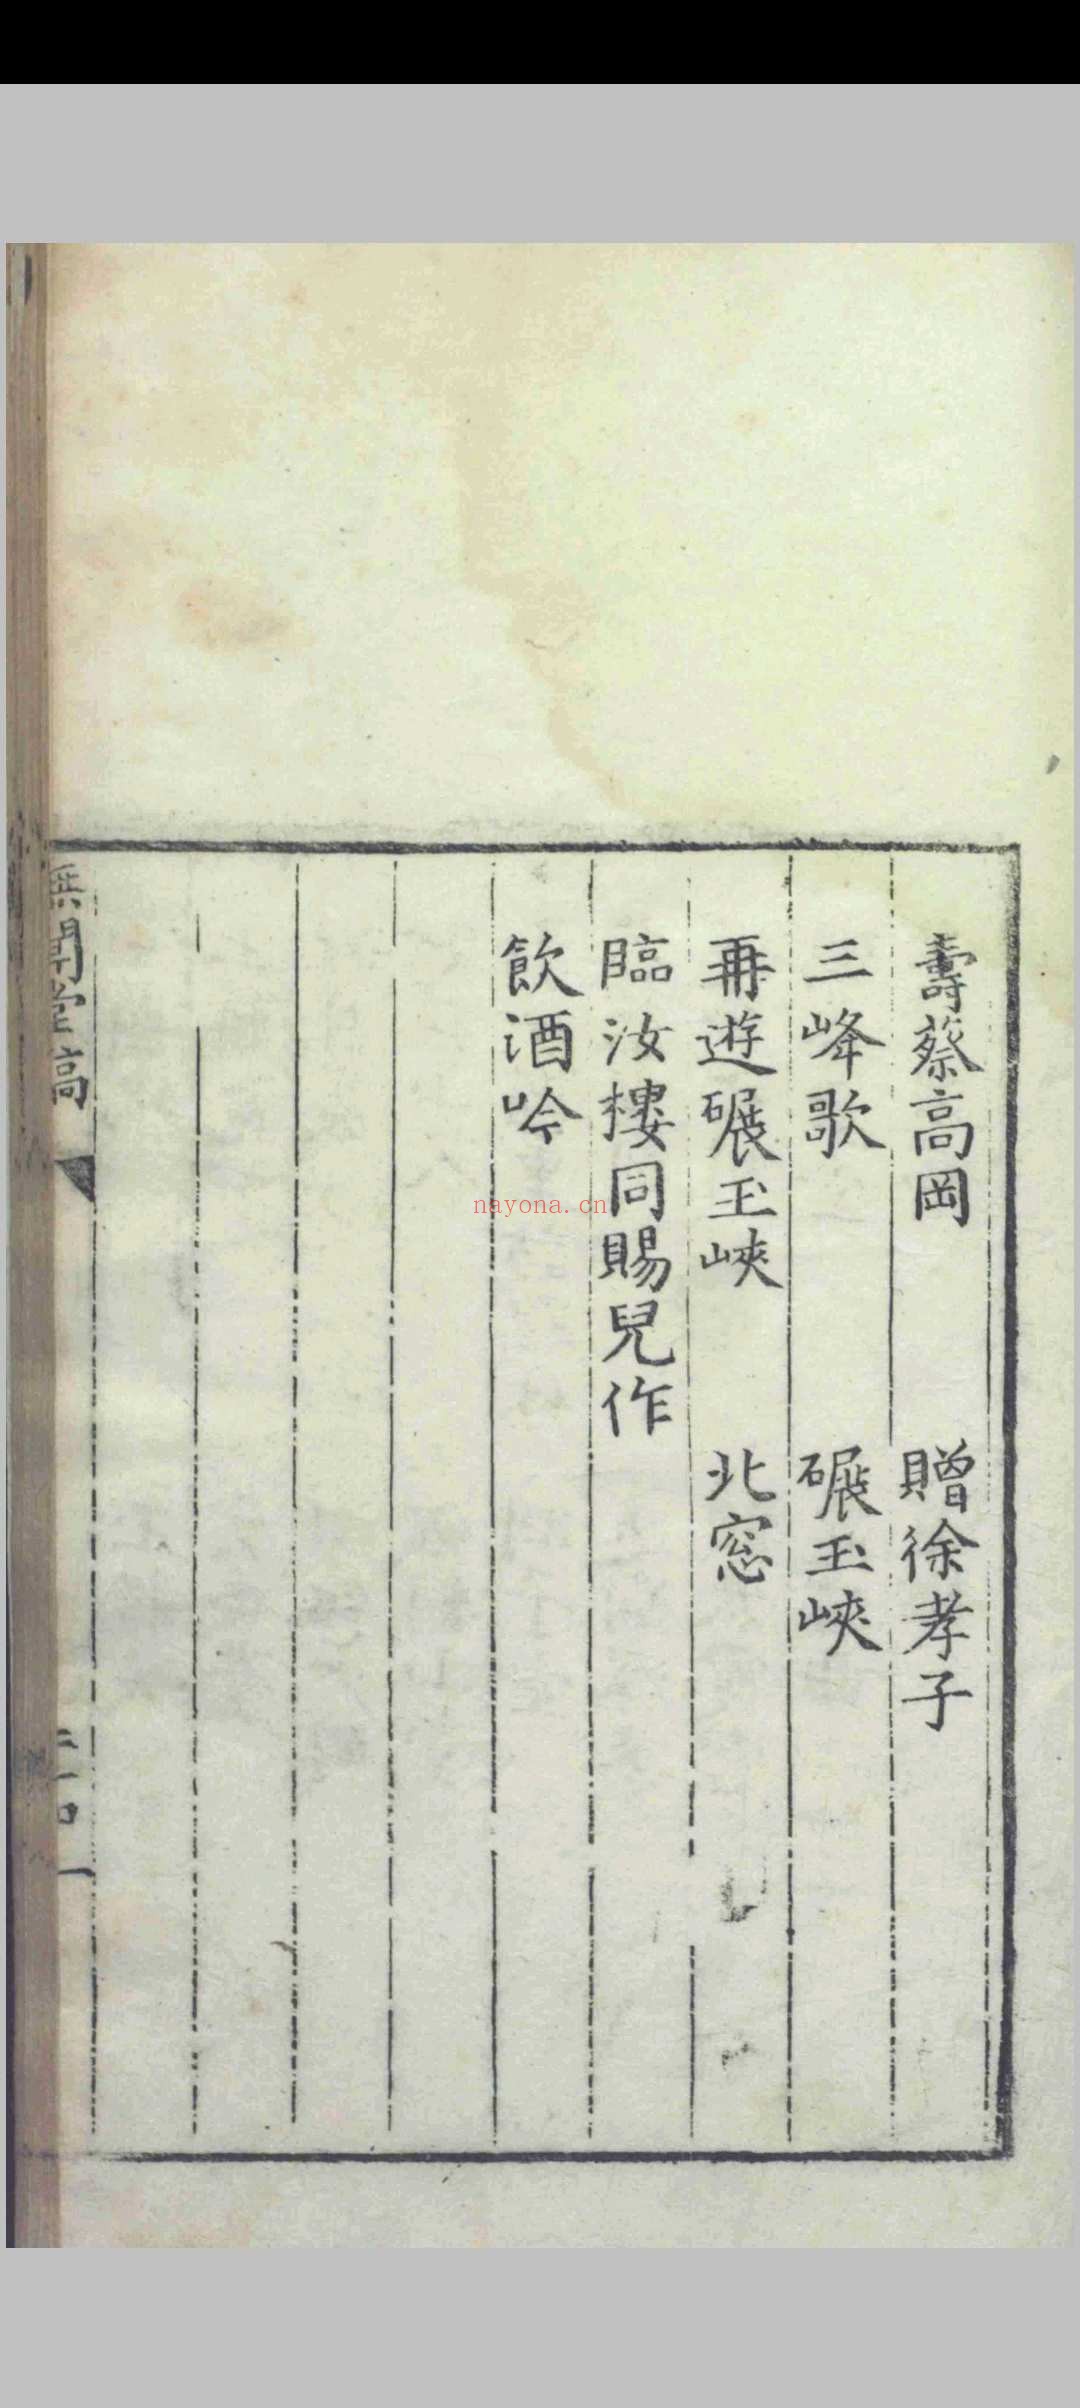 壽蔡高岡　贈徐孝子
三峰歌　碾玉峽
再遊碾玉峽　北窓
臨汝樓同賜兒作
飲酒吟
閒堂稿
nayona.cn